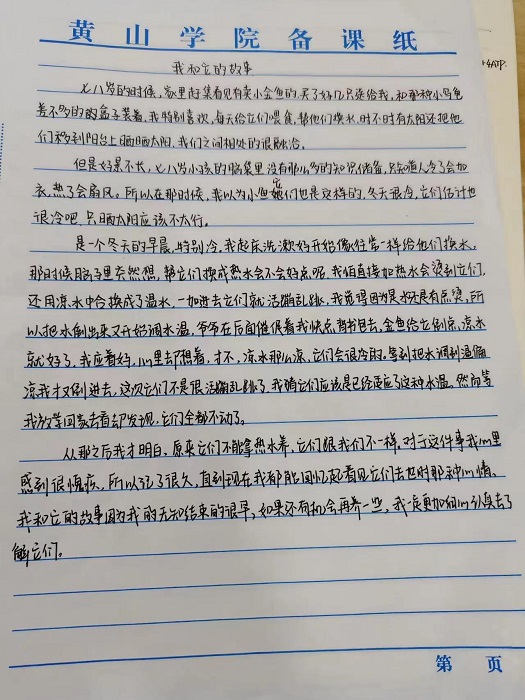 黄山学院备课纸
我和它的故事
七八岁的时候,家里赶集看见有卖小金鱼的,买了好几只送给我,和那种小乌龟
差不多的的盒子装着,我特别喜欢,每天给它们喂食,帮他们换水,时不时有太阳还把他
们移到阳台上晒晒太阳,我们之间相处的很融洽。
但是好景不长,七八岁小孩的脑袋里没有那么多的知识储备,只知道人冷了会加
衣,热了会扇风。所以在那时候,我以为小鱼它们也是这样的,冬天很冷,它们估计也
很冷吧,只晒太阳应该不太行。
是一个冬天的早晨,特别冷,我起床洗漱好开始像往常一样给他们换水,
那时候脑子里突然想,帮它们换成热水会不会好点呢,我怕直接加热水会烫到它们,
还用凉水中合换成了温水,一加进去它们就活蹦乱跳,我觉得因为是水还是有点烫,所
以把水倒出来又开始调水温,爷爷在后面催促着我快点,背书包去,金鱼给它倒点凉水
就好了,我应着好,心里却想着,才不,凉水那么凉,它们会很冷的。等到把水调到温偏
凉我才又倒进去,这次它们不是很活蹦乱跳了,我猜它们应该是已经适应了这种水温。然而等
我放学回家去看却发现,它们全都不动了。
从那之后我才明白,原来它们不能拿热水养,它们跟我们不一样,对于这件事我心里
感到很愧疚,所以记了很久,直到现在我都能回忆起看见它们去世时那种心情。
我和它的故事因为我的无知结束的很早,如果还有机会再养一些,我一定更加细心认真去了
解它们。
第 页